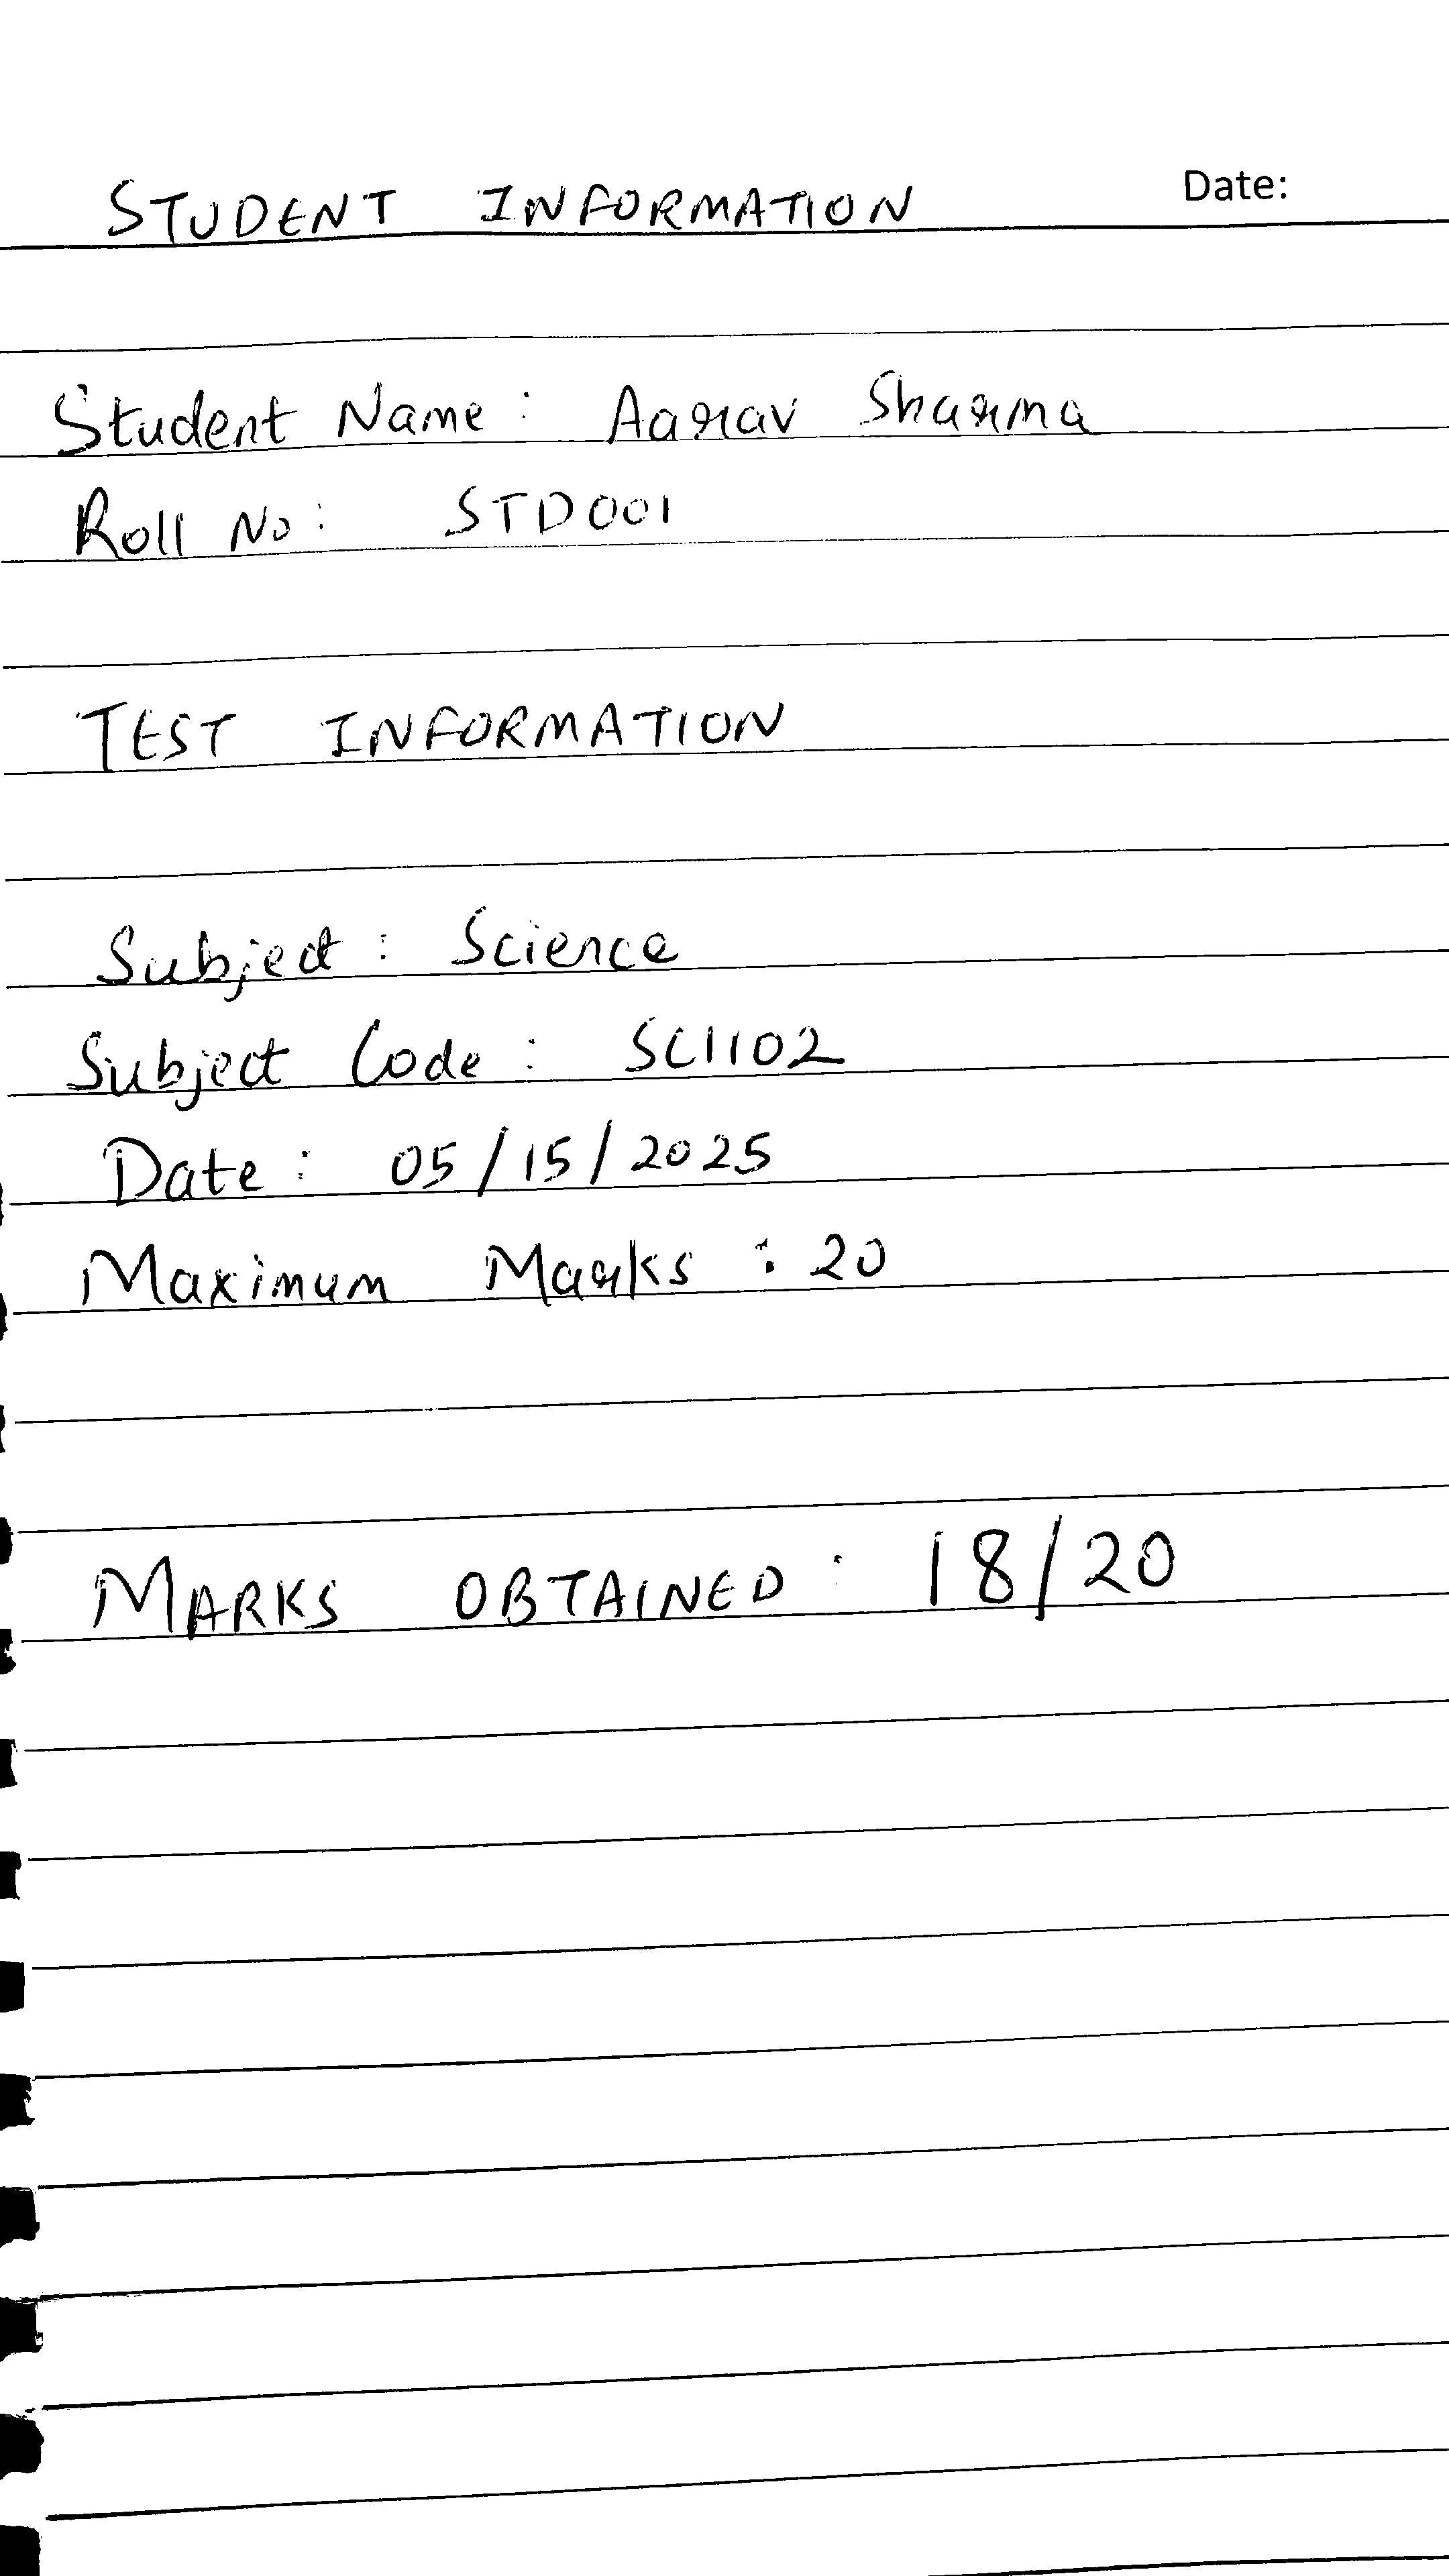 STUDENT INFORMATION Date:
Student Name: Aarav Sharma
Roll No: STD001
TEST INFORMATION
Subject: Science
Subject Code: SCI102
Date: 05/15/2025
Maximum Marks: 20
MARKS OBTAINED: 18/20